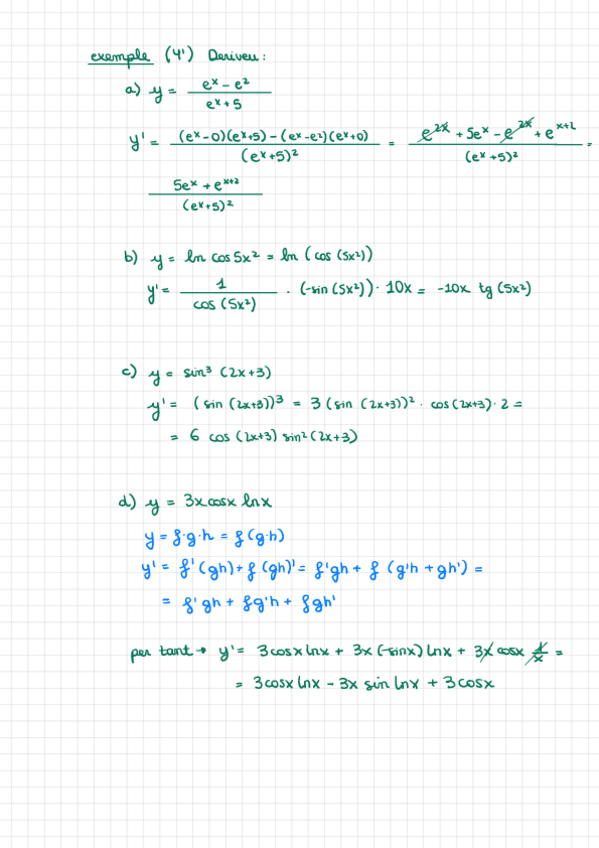 exemple (4') Deriveu:
a) y = (eˣ - e²) / (eˣ + 5)
y' = (eˣ-0)(eˣ+5) - (eˣ-e²)(eˣ+0) / (eˣ+5)² = e²ˣ + 5eˣ - e²ˣ + eˣ⁺² / (eˣ+5)² =
5eˣ + eˣ⁺² / (eˣ+5)²
b) y = ln cos 5x² = ln (cos (5x²))
y' = 1 / cos (5x²) · (-sin (5x²)) · 10x = -10x tg (5x²)
c) y = sin³ (2x+3)
y' = (sin (2x+3))³ = 3 (sin (2x+3))² · cos (2x+3) · 2 =
= 6 cos (2x+3) sin² (2x+3)
d) y = 3x cosx lnx
y = f·g·h = f (g·h)
y' = f' (gh) + f (gh)' = f'gh + f (g'h + gh') =
= f'gh + fg'h + fgh'
per tant → y' = 3cosx lnx + 3x (-sinx) lnx + 3x cosx 1/x =
= 3cosx lnx - 3x sin lnx + 3cosx